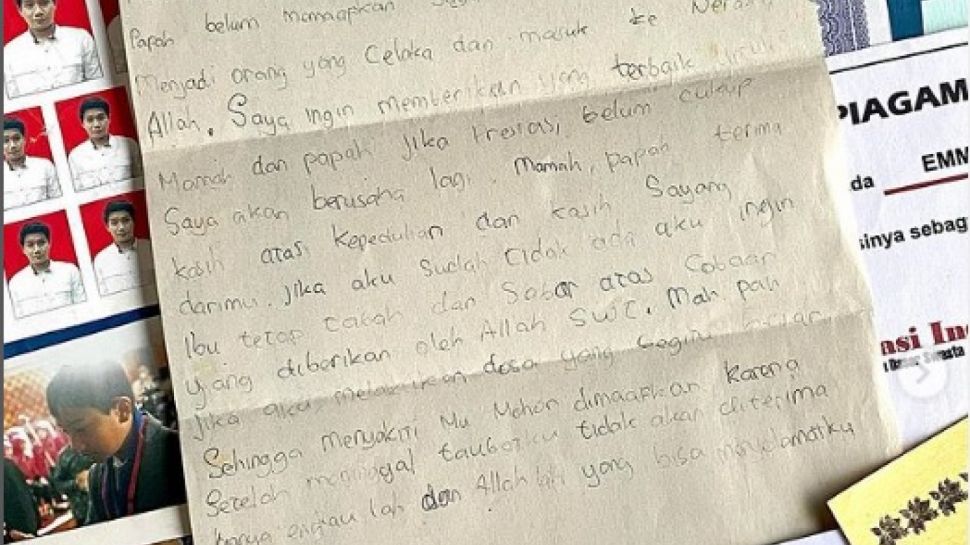 Papah belum memaapkan
Menjadi orang yang Celaka dan masuk ke Nera
Allah. Saya ingin memberikan yang terbaik
Mamah dan papah jika Prestasi belum cukup
Saya akan berusaha lagi. Mamah, papah terima
kasih atas kepedulian dan kasih Sayang
darimu. Jika aku Sudah tidak ada aku ingin
Ibu tetap tabah dan Sabar atas Cobaan
yang diberikan oleh Allah SWT. Mah pah
jika aku melakukan dosa yang begini besar
Sehingga menyakiti Mu Mohon dimaapkan Karena
Setelah meninggal taubatku tidak akan diterima
hanya engkau lah dan Allah lah yang bisa menyelamatku
PIAGAM
da EMM
sinya sebag
asi In